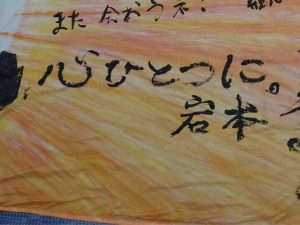 また会おうネ!
心ひとつに。
岩本